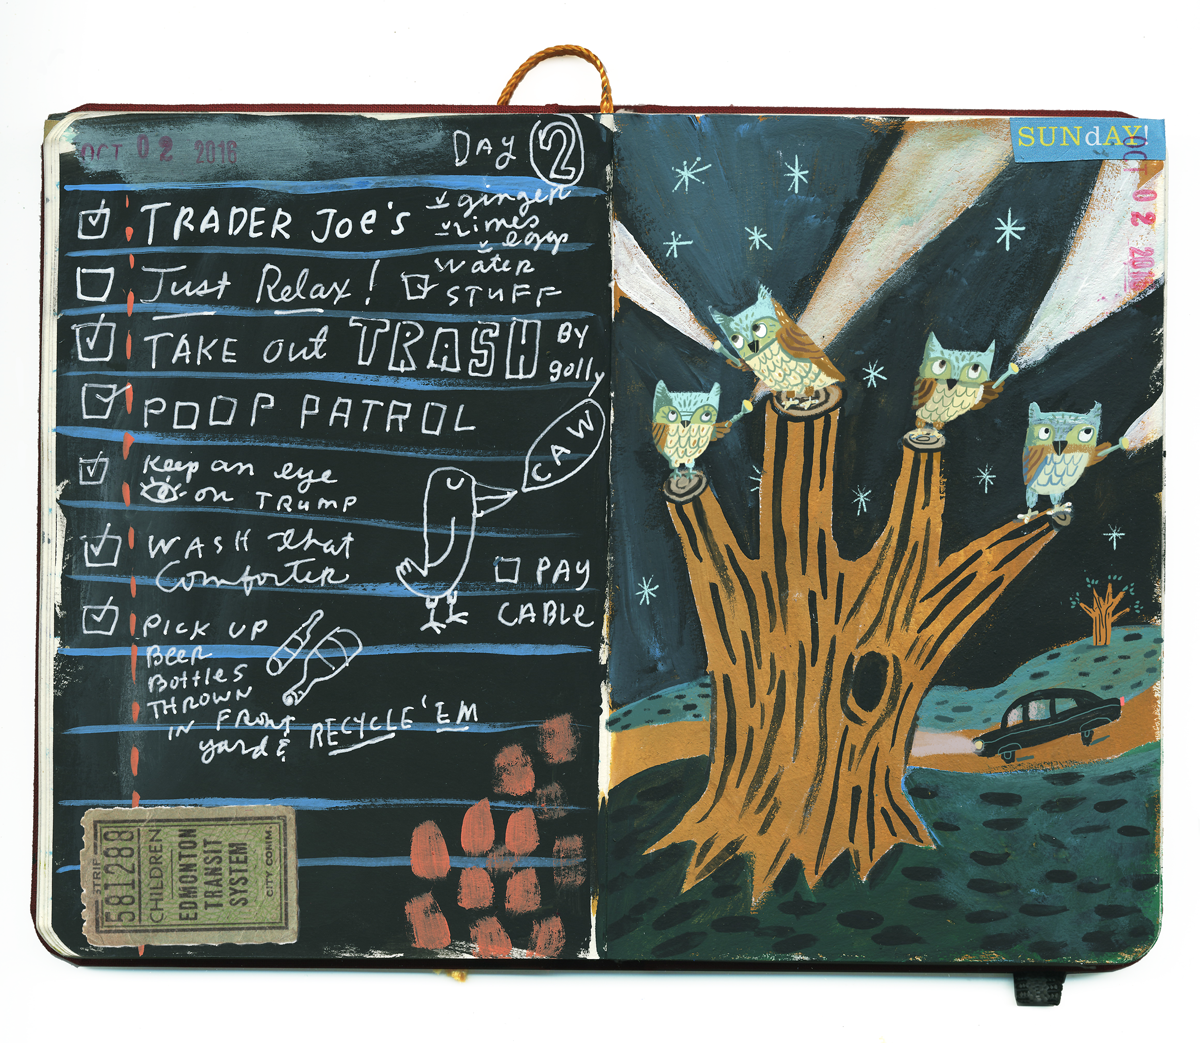 OCT 02 2016
DAY 2
TRADER JOE'S
ginger
limes
eggs
water
Just Relax!
STUFF
TAKE out TRASH BY
golly
POOP PATROL
CAW
Keep an eye
on TRUMP
WASH that
Comforter
PAY
CABLE
PICK UP
Beer
Bottles
THROWN
IN FRONT
yard & RECYCLE 'EM
STRIP
581288
CHILDREN
EDMONTON
TRANSIT
SYSTEM
CITY COMM.
SUNdAY!
OCT 02 2016